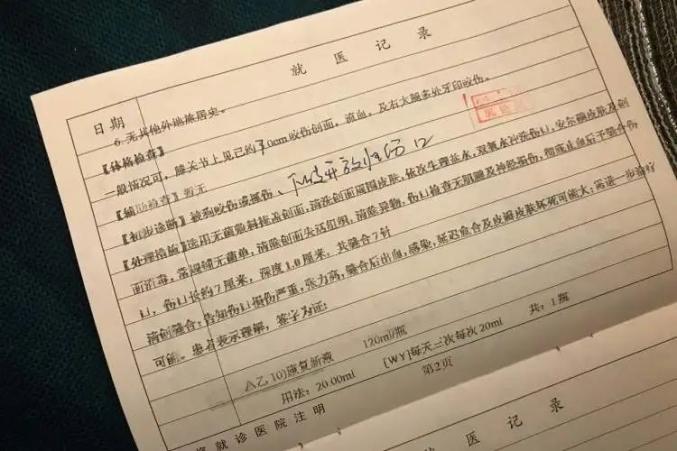 就 医 记 录
日期
6. 无其他外地旅居史。
【体格检查】
一般情况可，膝关节上见已约7.0cm咬伤创面，流血，及右大腿多处牙印咬伤。
【辅助检查】暂无
【初步诊断】被狗咬伤或抓伤、开放性伤口
【处理措施】选用无菌敷料接盖创面，清洗创面周围皮肤，依次生理盐水，双氧水冲洗伤口，安尔碘皮肤及创
面消毒，常规铺无菌单，清除创面失活组织，清除异物，伤口检查无肌腱及神经损伤，彻底止血后予缝合伤
口，伤口长约7厘米，深度1.0厘米，共缝合7针
清创缝合：告知伤口损伤严重，张力高，缝合后出血，感染，延迟愈合及皮瓣皮肤坏死可能大，需进一步治疗
可能。患者表示理解，签字为证：
(乙10)康复新液 120ml/瓶 共：1瓶
用法：20.00ml [WY]每天三次每次20ml
第2页
就诊医院注明
医 记 录